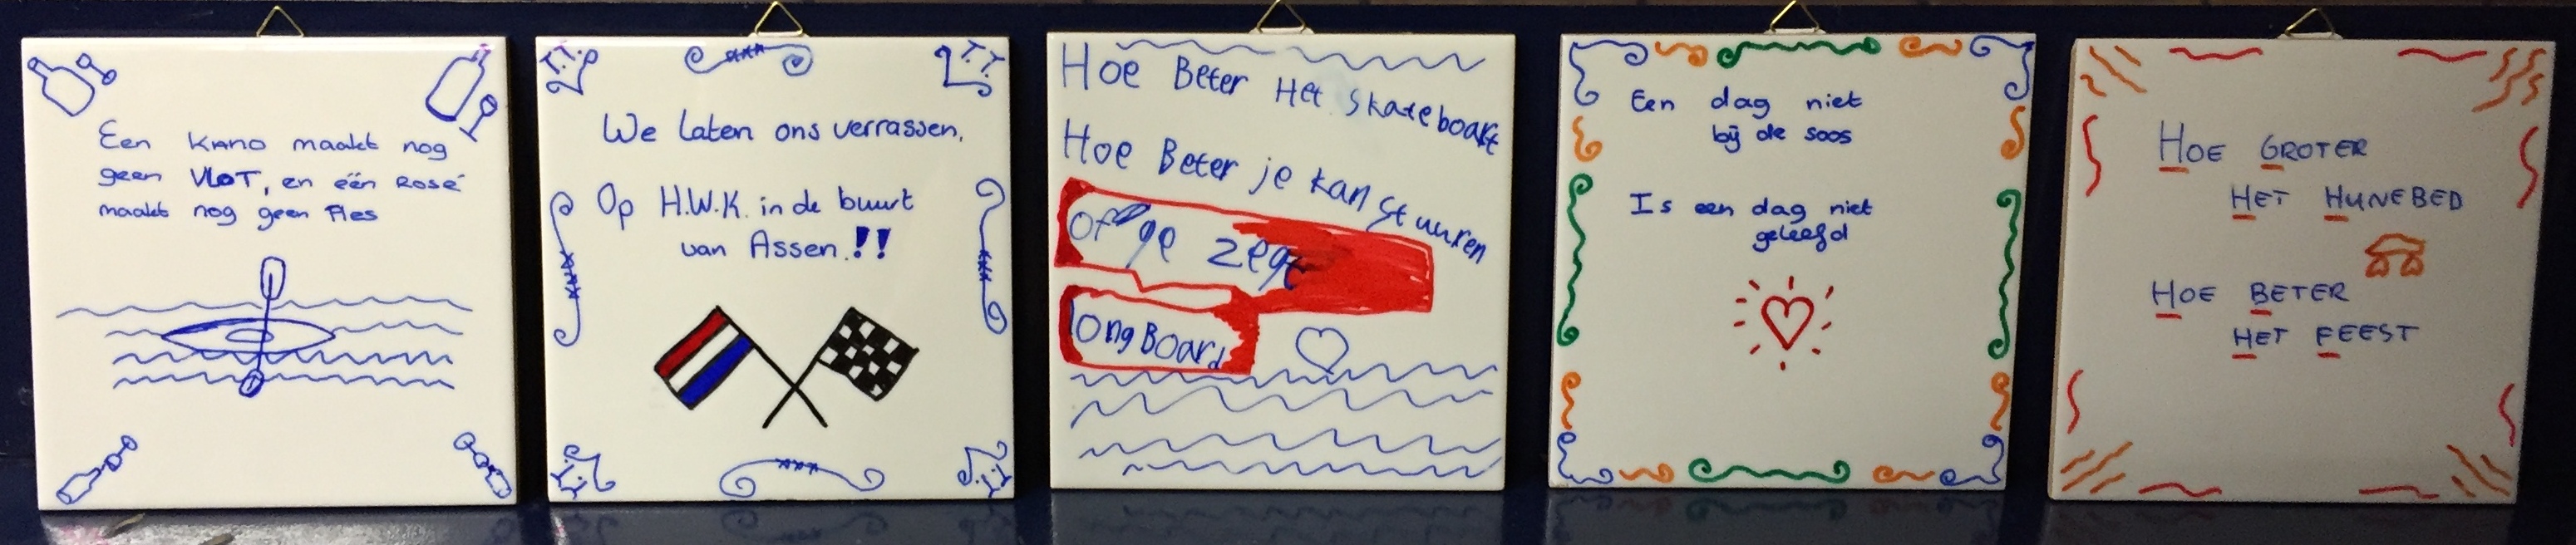 Een KANO maakt nog
geen VLOT, en één Rosé
maakt nog geen Fles
T.T.
T.T.
We laten ons verrassen,
Op H.W.K. in de buurt
van Assen!!
T.T.
T.T.
Hoe Beter Het skateboart
Hoe Beter je kan stuuren
of ge zegt
longBoard
Een dag niet
bij de soos
Is een dag niet
geleefd
HOE GROTER
HET HUNEBED
HOE BETER
HET FEEST